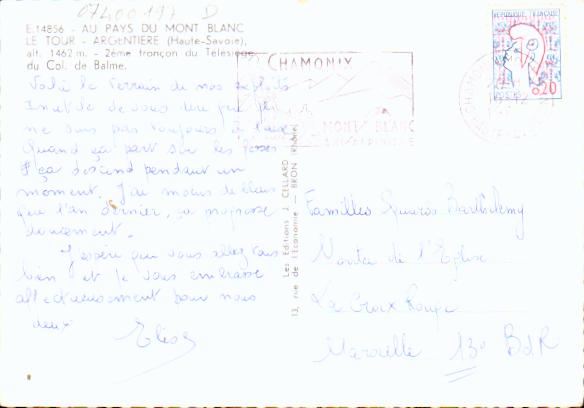 07400197 D
E.14856 - AU PAYS DU MONT BLANC
LE TOUR - ARGENTIERE (Haute-Savoie),
alt. 1462 m. - 2ème tronçon du Télésiège
du Col. de Balme.
CHAMONIX
MONT BLANC
RÉPUBLIQUE FRANÇAISE
POSTES 0,20
CHAMONIX
Voilà le terrain de nos exploits
Inutile de vous dire que je
ne suis pas toujours à l'aise
Quand ça part sur les fesses
ça descend pendant un
moment. J'ai moins de
que l'an dernier, ça
doucement.
J'espère que vous allez tous
bien et je vous embrasse
affectueusement pour nous
deux
Les Editions J. CELLARD
13, rue de l'Economie - BRON (Rhône)
Familles Barthélemy
Montée de l'Eglise
La Croix Rouge
Marseille 13e BdR